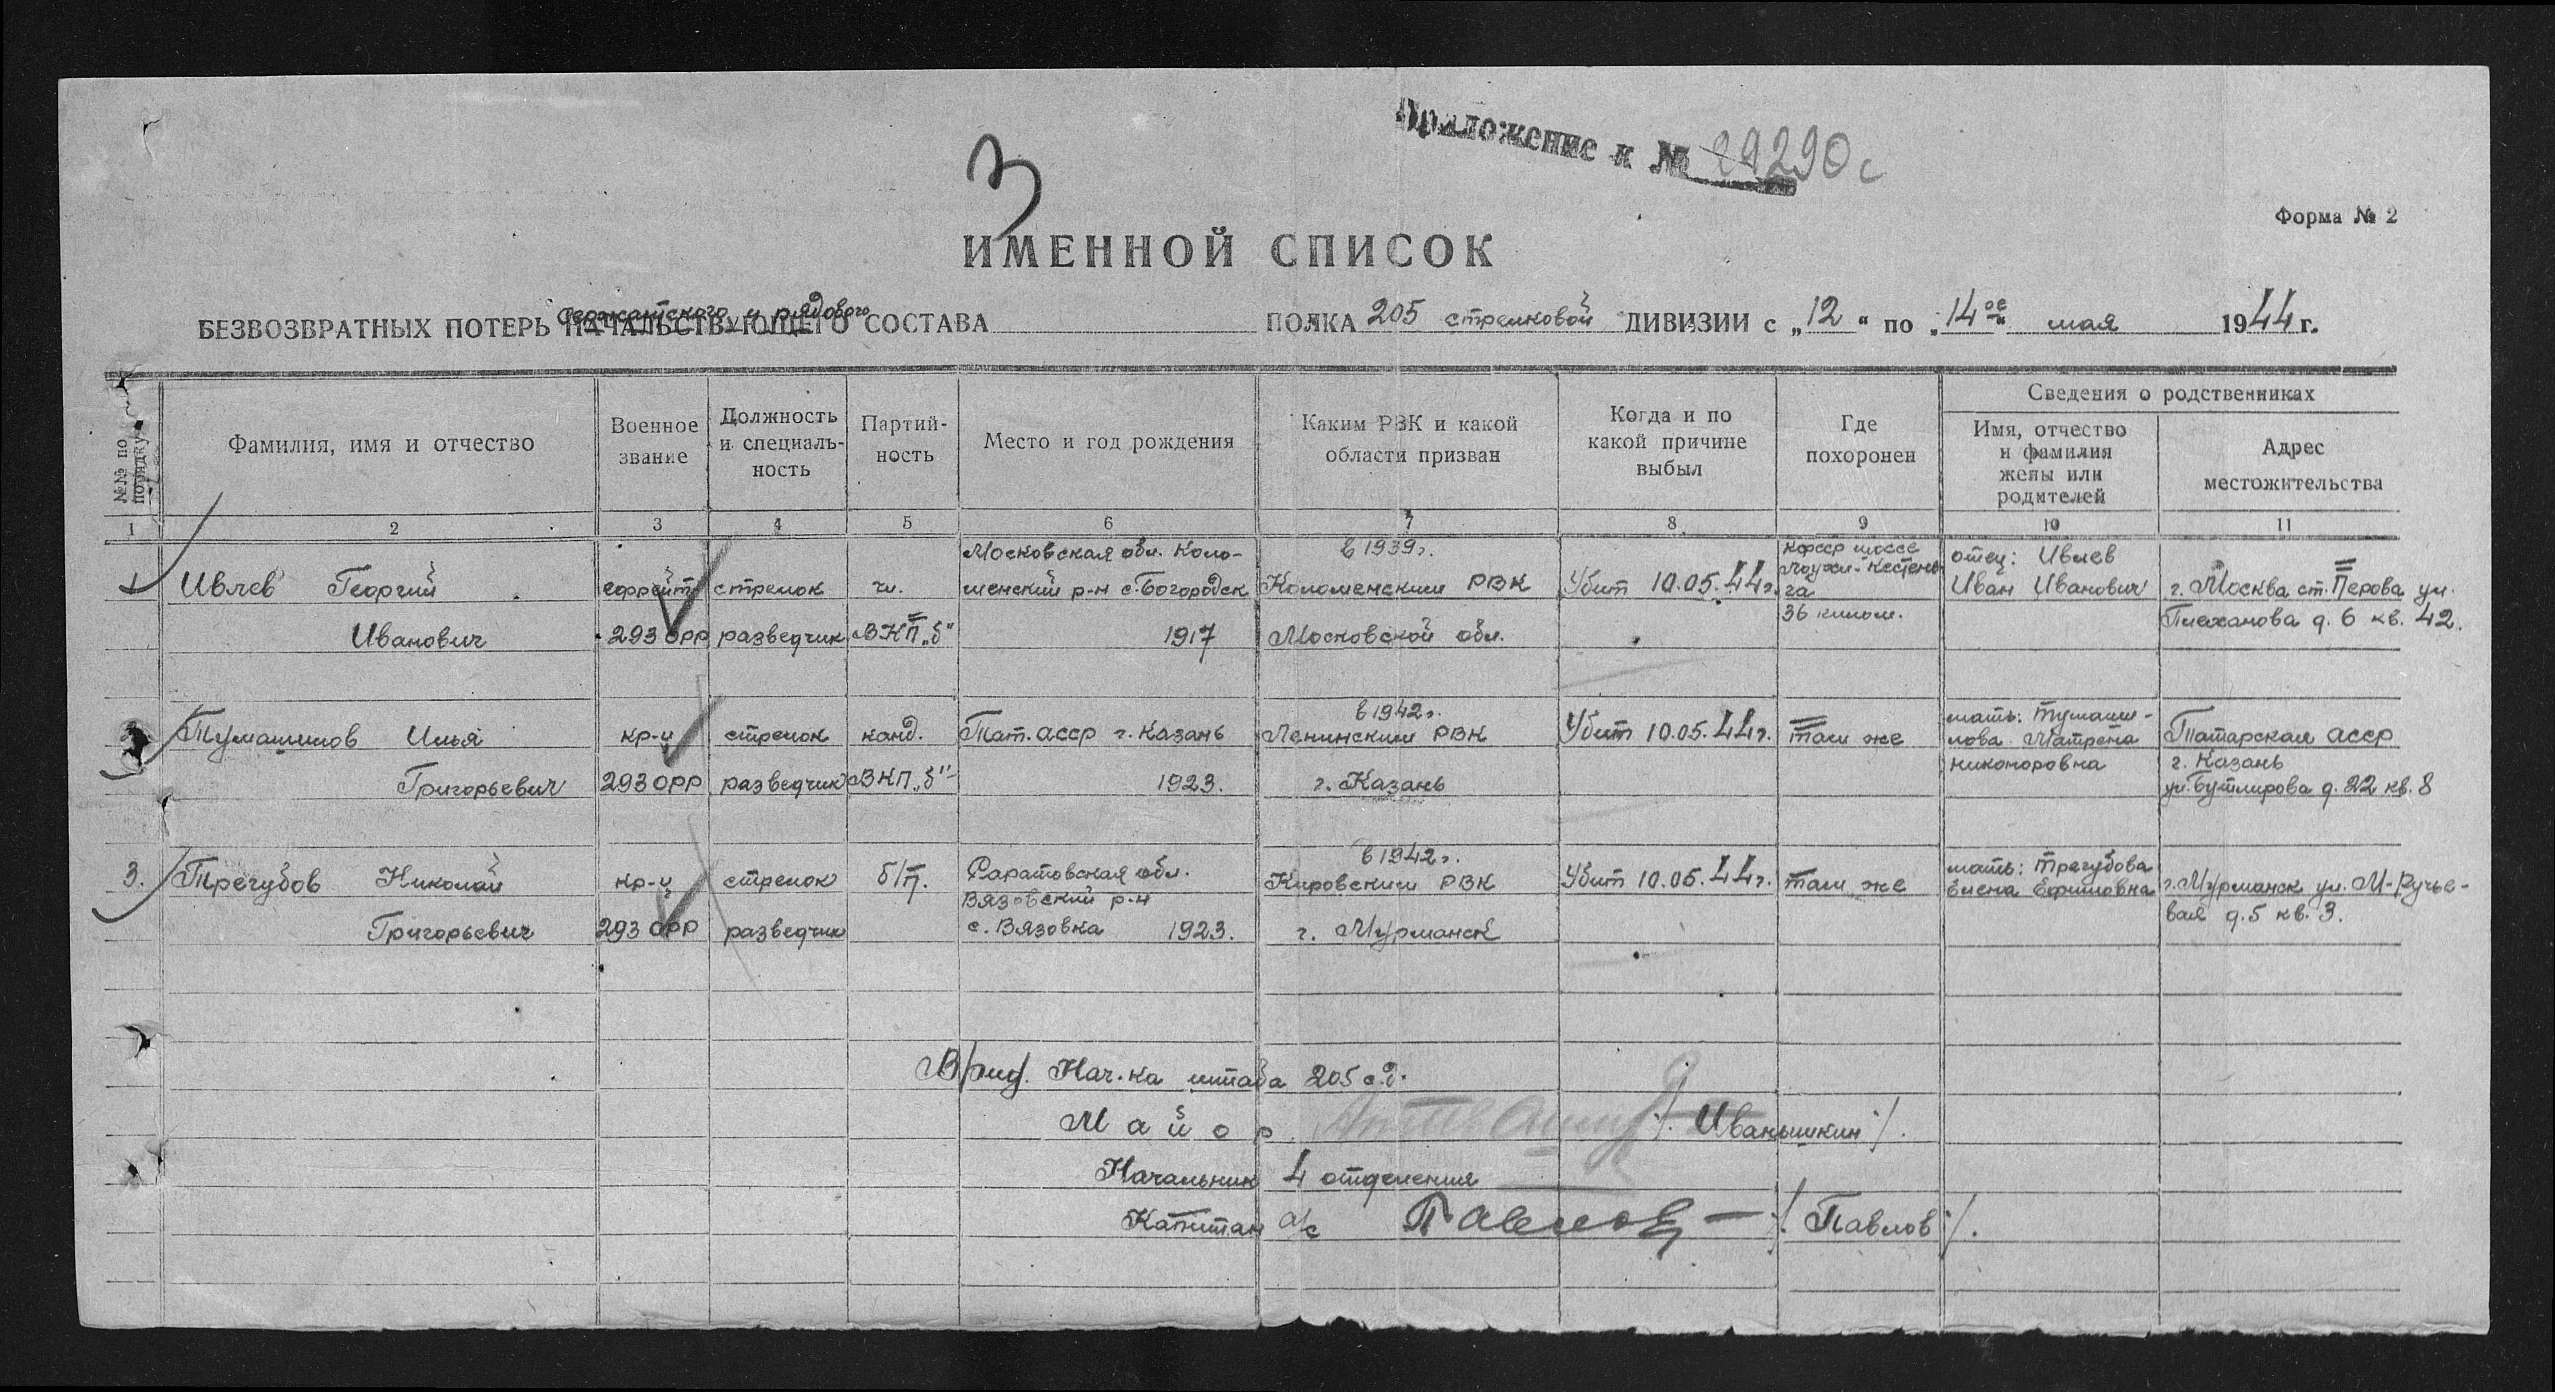 Приложение к № 29290с
3
Форма № 2
ИМЕННОЙ СПИСОК
сержантского и рядового
БЕЗВОЗВРАТНЫХ ПОТЕРЬ НАЧАЛЬСТВУЮЩЕГО СОСТАВА ПОЛКА 205 стрелковой ДИВИЗИИ с „12“ по „14ое“ мая 1944 г.
№№ по порядку
Фамилия, имя и отчество
Военное звание
Должность и специаль-ность
Партий-ность
Место и год рождения
Каким РВК и какой области призван
Когда и по какой причине выбыл
Где похоронен
Сведения о родственниках
Имя, отчество и фамилия жены или родителей
Адрес местожительства
1 2 3 4 5 6 7 8 9 10 11
1 Ивлев Георгий Иванович
ефрейт 293 ОРР
стрелок разведчик
чл. ВКП„б“
Московская обл. Коло-
менский р-н с. Богородск
1917
в 1939г.
Коломенским РВК
Московской обл.
Убит 10.05.44г.
кфсср шоссе
Лоухи-Кестень
га
36 килом.
отец: Ивлев
Иван Иванович
г. Москва ст. Перова ул.
Плеханова д. 6 кв. 42.
2 Тумашилов Илья
Григорьевич
кр-ц 293 ОРР
стрелок разведчик
канд. ВКП„б“
Тат. асср г. Казань
1923.
в 1942г.
Ленинским РВК
г. Казань
Убит 10.05.44г.
там же
мать: Тумаши-
лова Матрена
Никоноровна
Татарская асср
г. Казань
ул. Бутлирова д. 22 кв. 8
3. Трегубов Николай
Григорьевич
кр-ц 293 ОРР
стрелок разведчик
б/п.
Саратовская обл.
Вязовский р-н
с. Вязовка 1923.
в 1942г.
Кировским РВК
г. Мурманск
Убит 10.05.44г.
там же
мать: Трегубова
Елена Ефимовна
г. Мурманск ул. М-Ручье-
вая д. 5 кв. 3.
Врид. Нач-ка штаба 205 с.д.
Майор /Иванышкин/.
Начальник 4 отделения
Капитан а/с Павлов /Павлов/.